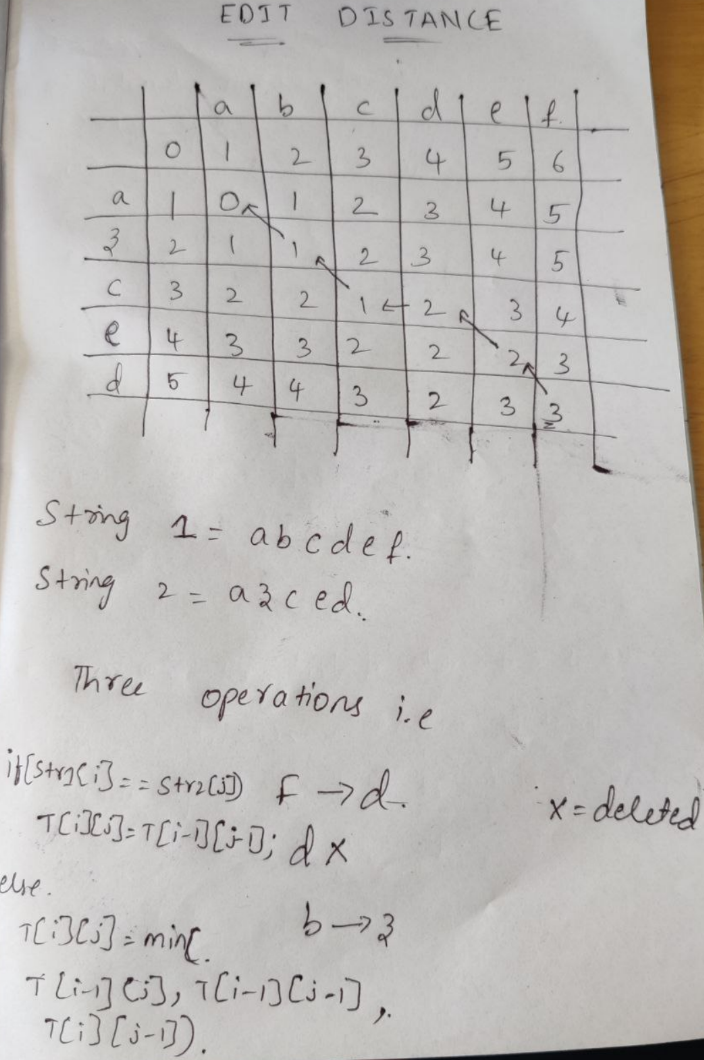 EDIT DISTANCE
a b c d e f
0 1 2 3 4 5 6
a 1 0 1 2 3 4 5
z 2 1 1 2 3 4 5
c 3 2 2 1 2 3 4
e 4 3 3 2 2 2 3
d 5 4 4 3 2 3 3
String 1 = abcdef.
String 2 = azced.
Three operations i.e
if(str1[i]==str2[j]) f → d.
x = deleted
T[i][j]=T[i-1][j-1]; d x
else.
T[i][j]=min( b → z
T[i-1][j], T[i-1][j-1],
T[i][j-1]).